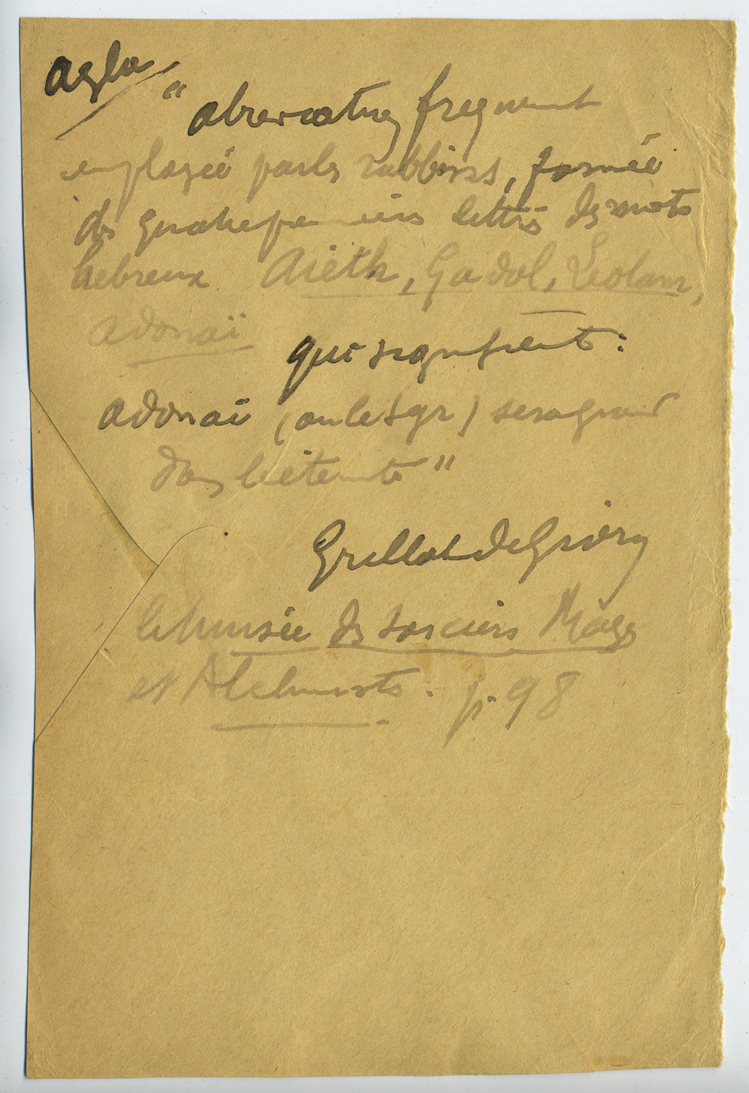 Agla
"abreviation frequement
employée par les rabbins, formée
des quatre premières lettres des mots
hebreux Aieth, Gadol, Leolam,
Adonaï
qui signifient :
Adonaï (ou le Sgr) sera grand
dans l'éternité"
Grillot de Givry
le Musée des sorciers Mages
et Alchimistes. p. 98